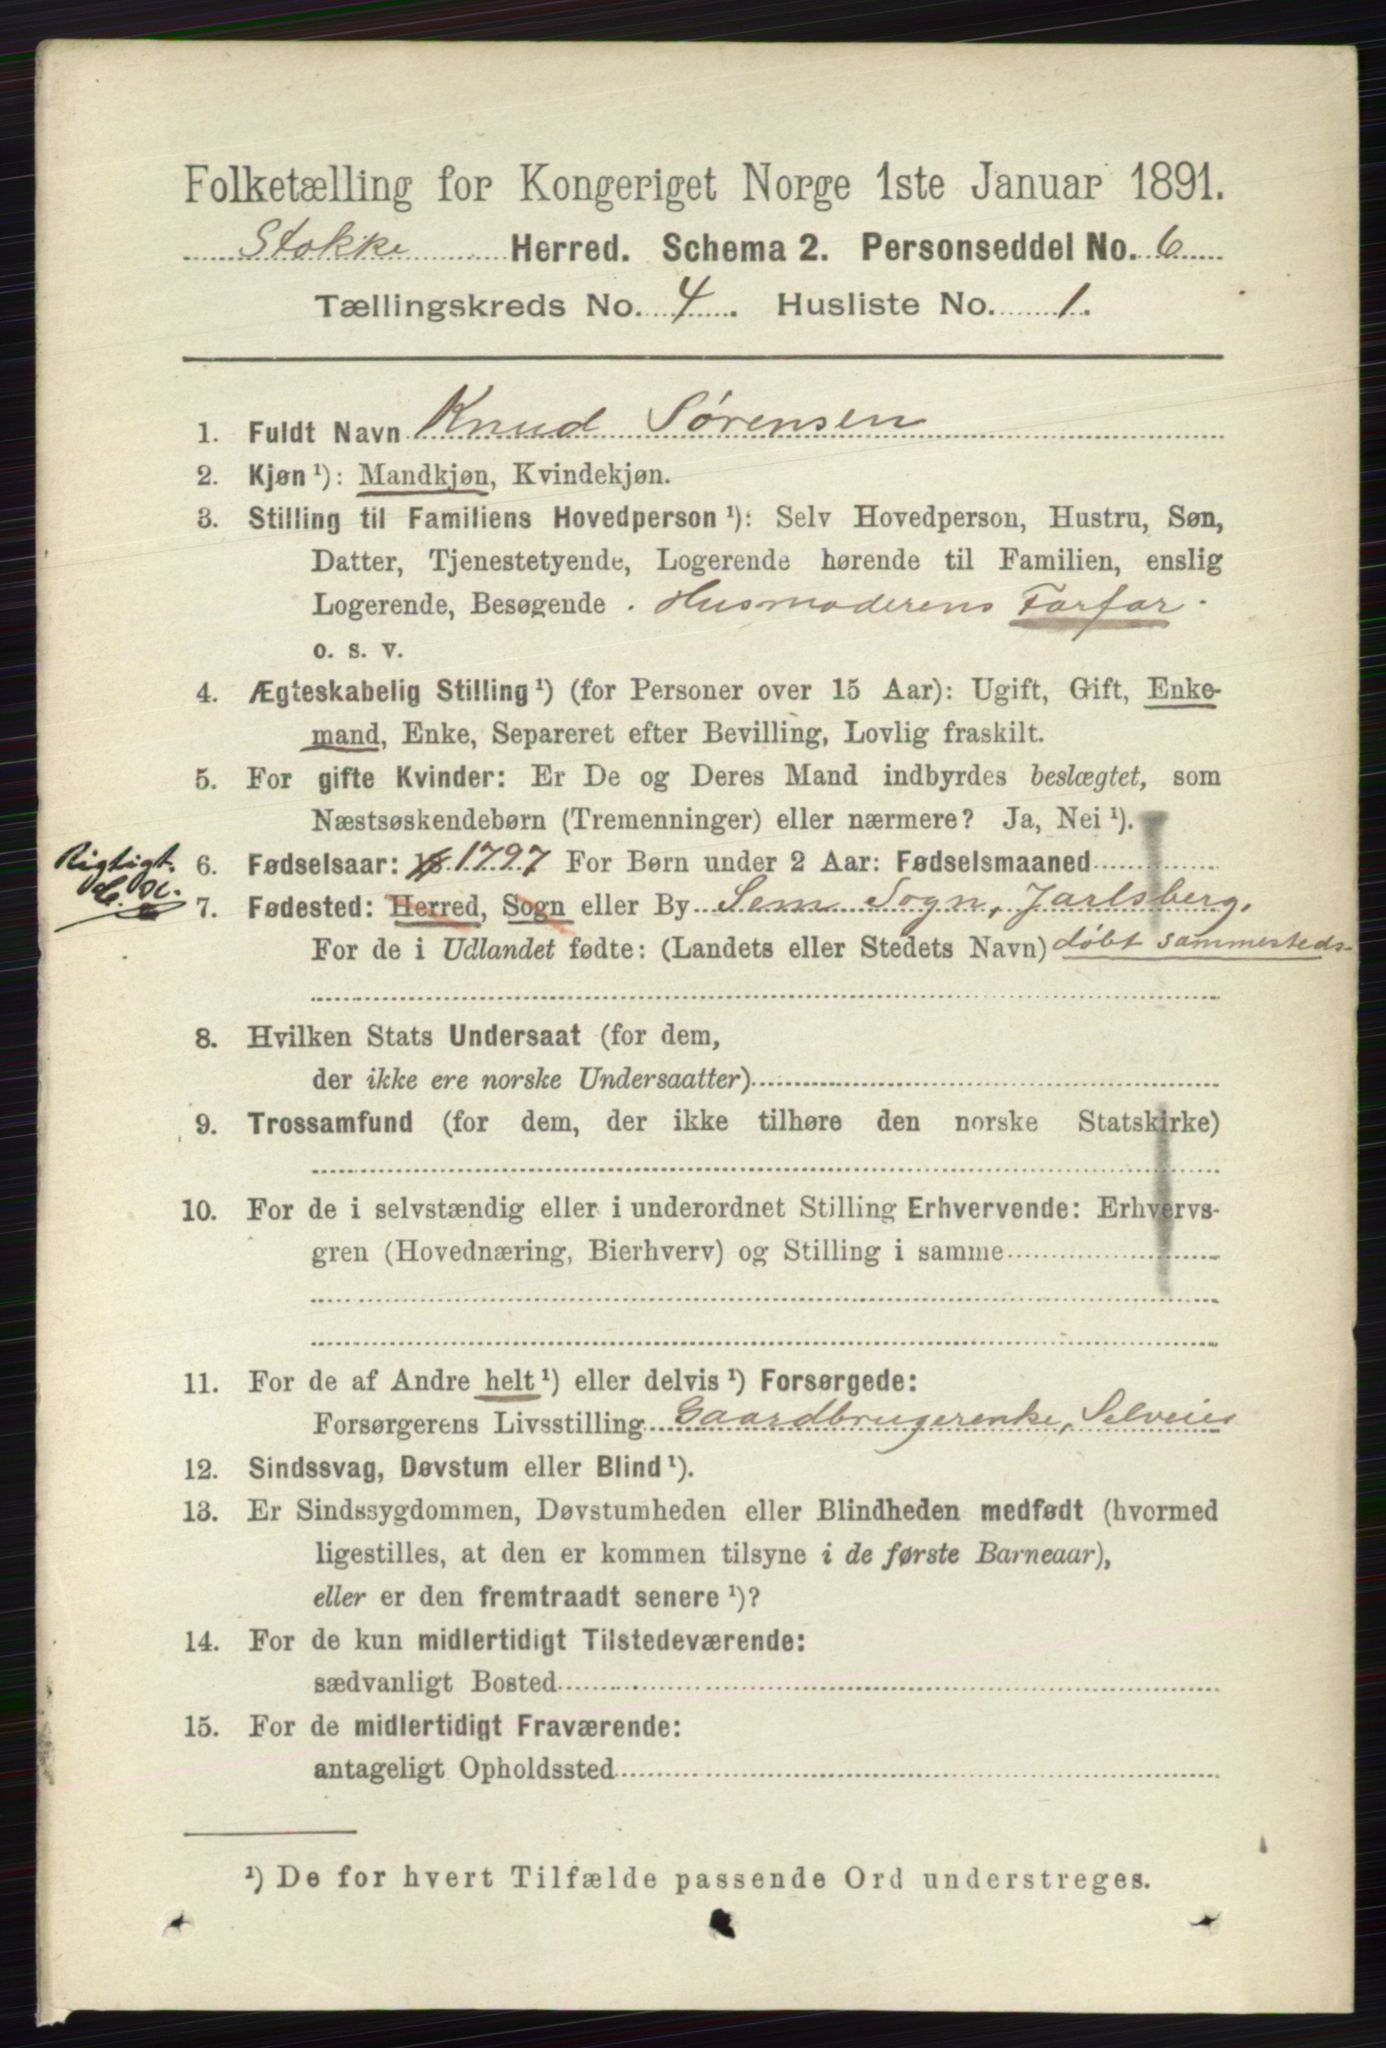 Folketælling for Kongeriget Norge 1ste Januar 1891.
Stokke Herred. Schema 2. Personseddel No. 6
Tællingskreds No. 4. Husliste No. 1.
1. Fuldt Navn Knud Sørensen
2. Kjøn ¹): Mandkjøn, Kvindekjøn.
3. Stilling til Familiens Hovedperson ¹): Selv Hovedperson, Hustru, Søn,
Datter, Tjenestetyende, Logerende hørende til Familien, enslig
Logerende, Besøgende . Husmoderens Farfar.
o. s. v.
4. Ægteskabelig Stilling ¹) (for Personer over 15 Aar): Ugift, Gift, Enke-
mand, Enke, Separeret efter Bevilling, Lovlig fraskilt.
5. For gifte Kvinder: Er De og Deres Mand indbyrdes beslægtet, som
Næstsøskendebørn (Tremenninger) eller nærmere? Ja, Nei ¹).
Rigtigt.
6. Fødselsaar: 18 1797 For Børn under 2 Aar: Fødselsmaaned
7. Fødested: Herred, Sogn eller By Sem Sogn, Jarlsberg,
For de i Udlandet fødte: (Landets eller Stedets Navn) døbt sammesteds
8. Hvilken Stats Undersaat (for dem,
der ikke ere norske Undersaatter)
9. Trossamfund (for dem, der ikke tilhøre den norske Statskirke)
10. For de i selvstændig eller i underordnet Stilling Erhvervende: Erhvervs-
gren (Hovednæring, Bierhverv) og Stilling i samme
11. For de af Andre helt ¹) eller delvis ¹) Forsørgede:
Forsørgerens Livsstilling Gaardbrugerenke, Selveier
12. Sindssvag, Døvstum eller Blind ¹).
13. Er Sindssygdommen, Døvstumheden eller Blindheden medfødt (hvormed
ligestilles, at den er kommen tilsyne i de første Barneaar),
eller er den fremtraadt senere ¹)?
14. For de kun midlertidigt Tilstedeværende:
sædvanligt Bosted
15. For de midlertidigt Fraværende:
antageligt Opholdssted
¹) De for hvert Tilfælde passende Ord understreges.